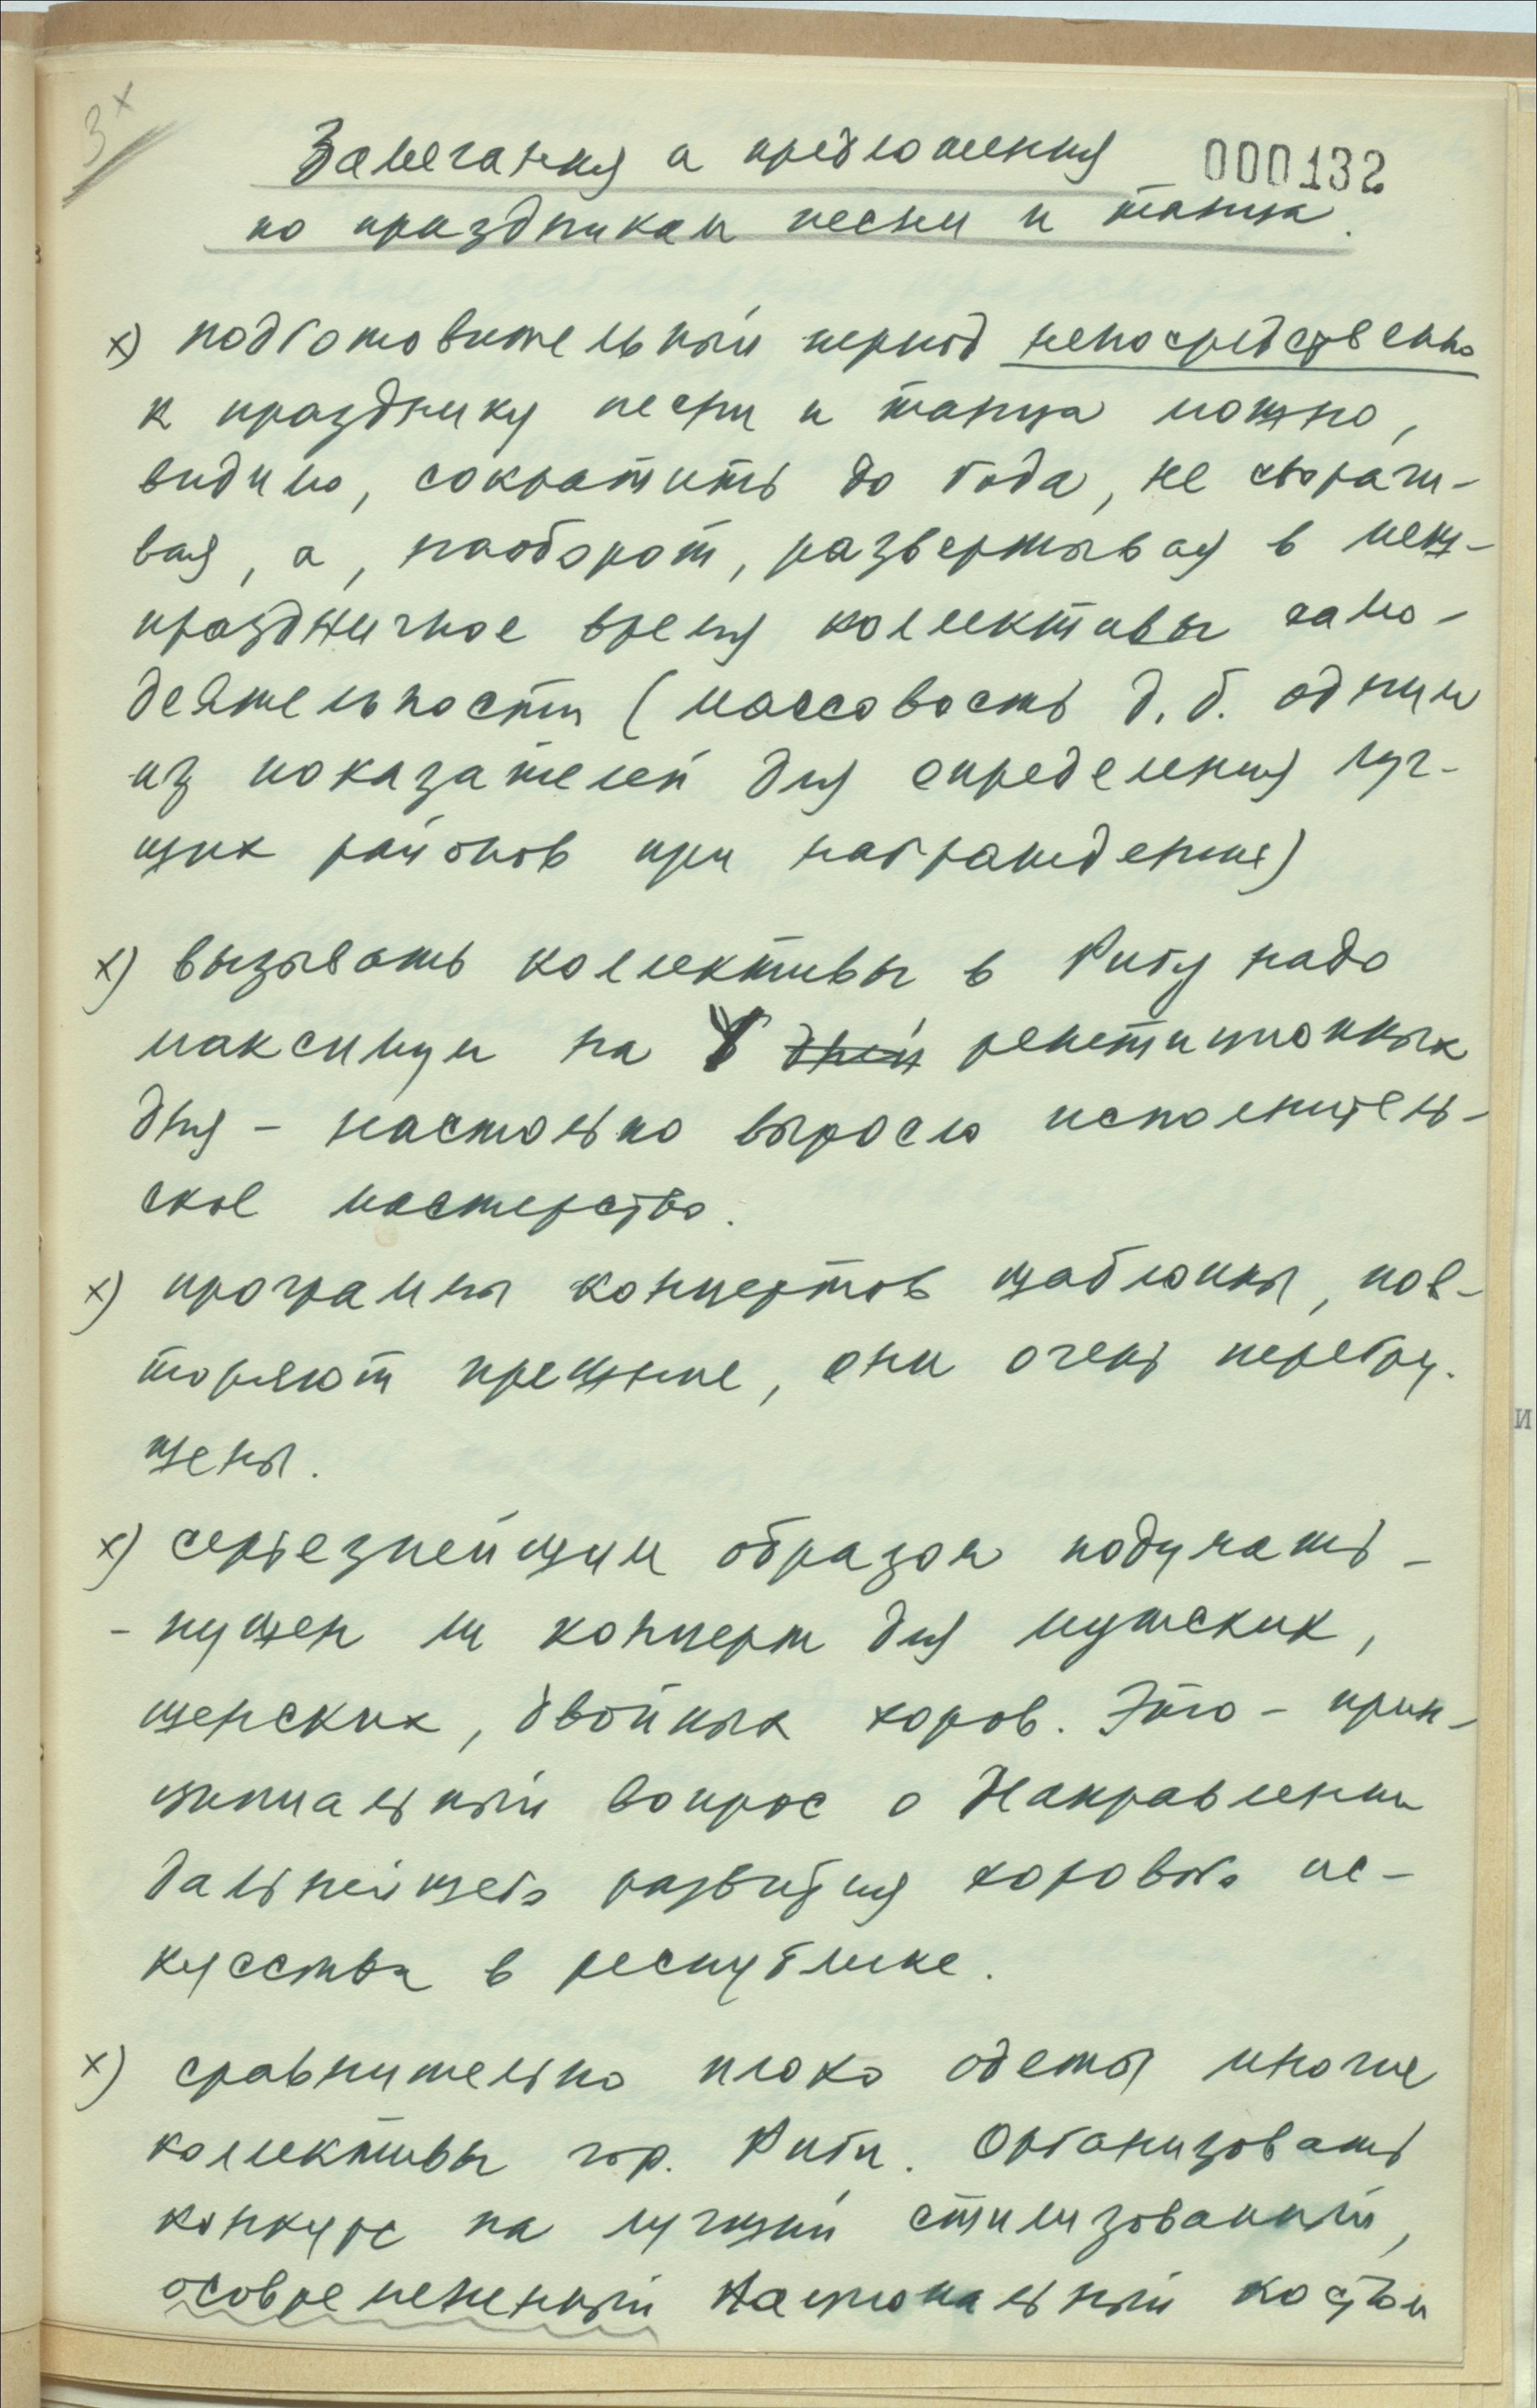 3х
Замечания и предложения 000132
по праздникам песни и танца.
х) подготовительный период непосредственно
к празднику песни и танца можно,
видимо, сократить до года, не сворачи-
вая, а, наоборот, развертывая в меж-
праздничное время коллективы само-
деятельности (массовость д.б. одним
из показателей для определения луч-
ших районов при награждении)
х) вызывать коллективы в Ригу надо
максимум на дней репетиционных
дня - настолько выросло исполнитель-
ское мастерство.
х) программы концертов шаблонны, пов-
торяют прежние, они очень перегру-
жены.
х) серьезнейшим образом подумать -
- нужен ли концерт для мужских,
женских, двойных хоров. Это - прин-
ципиальный вопрос о направлении
дальнейшего развития хорового ис-
кусства в республике.
х) сравнительно плохо одеты многие
коллективы гор. Риги. Организовать
конкурс на лучший стилизованный,
осовремененный национальный костюм
и